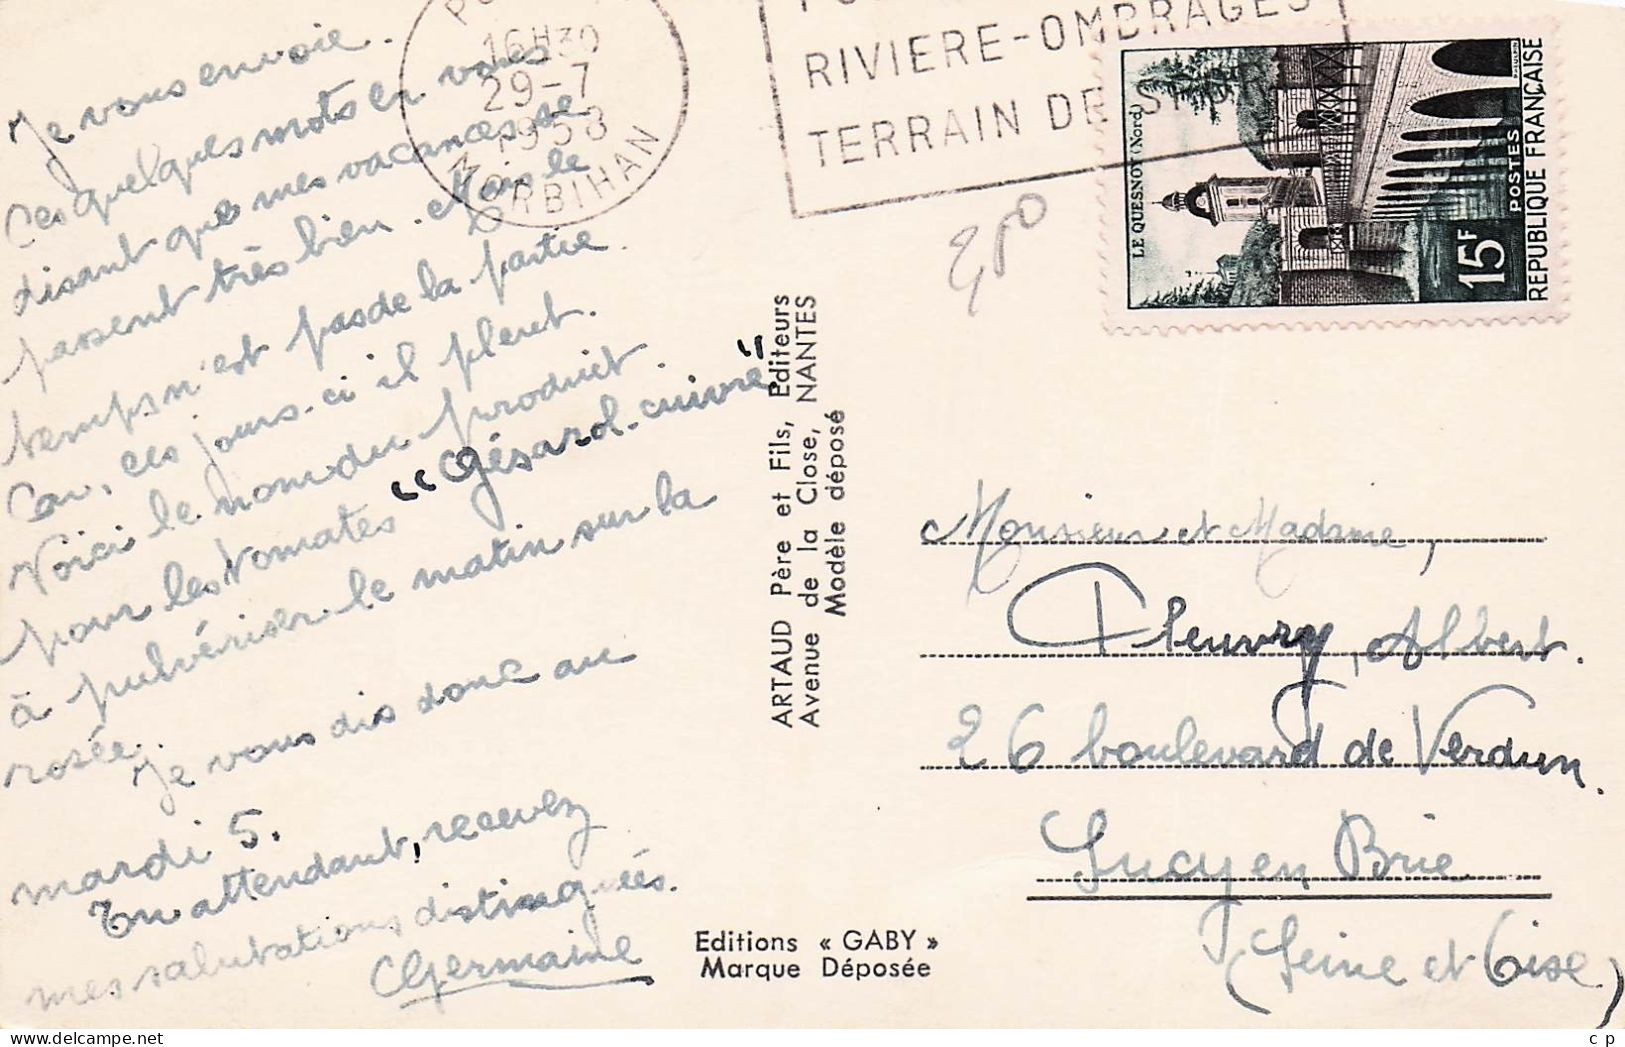 Je vous envoie
Ces quelques mots en vous
disant que mes vacances se
passent très bien. Mais le
temps n'est pas de la partie.
Car, ces jours-ci il pleut.
Voici le nom du produit.
pour les tomates "Gésarol-cuivré"
à pulvériser le matin sur la
rosée.
Je vous dis donc au
mardi 5.
En attendant, recevez
mes salutations distinguées.
Germaine
16H30
29-7
1958
MORBIHAN
RIVIERE-OMBRAGES
TERRAIN DE
LE QUESNOY (Nord)
15F
POSTES
REPUBLIQUE FRANÇAISE
ARTAUD Père et Fils, Editeurs
Avenue de la Close, NANTES
Modèle déposé
Editions « GABY »
Marque Déposée
Monsieur et Madame,
Fleuvry, Albert.
26 boulevard de Verdun.
Sucy en Brie
(Seine et Oise)
c p